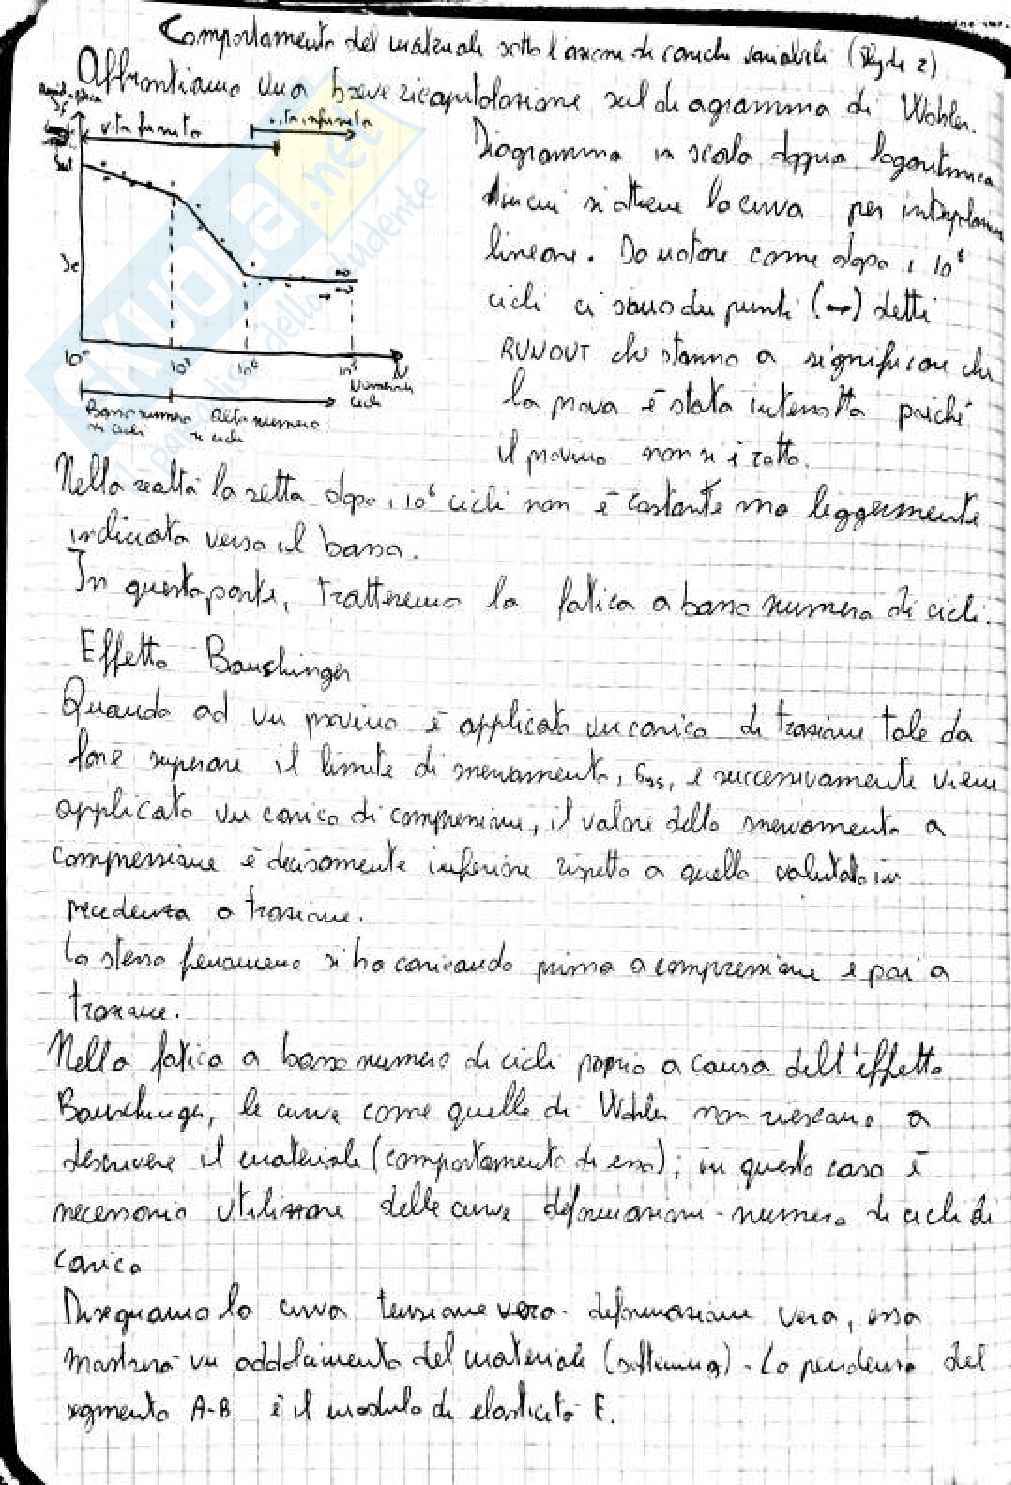 Comportamento del materiale sotto l'azione di carichi variabili (Slyde 2)
Affrontiamo una breve ricapitolazione sul diagramma di Wohler.
vita finita
vita infinita
Diagramma in scala doppia logaritmica
di cui si ottiene la curva per interpolazione
lineare. Da notare come dopo i 10⁶
cicli ci sono due punti (→) detti
RUNOUT che stanno a significare che
la prova è stata interrotta poiché
il provino non si è rotto.
Sut
Se
10⁰ 10³ 10⁶ N
Numero di cicli
Basso numero di cicli
Alto numero di cicli
Nella realtà la retta dopo i 10⁶ cicli non è costante ma leggermente
inclinata verso il basso.
In questa parte, tratteremo la fatica a basso numero di cicli.
Effetto Baushinger
Quando ad un provino è applicato un carico di trazione tale da
farne superare il limite di snervamento, e successivamente viene
applicato un carico di compressione, il valore dello snervamento a
compressione è decisamente inferiore rispetto a quello valutato in
precedenza a trazione.
Lo stesso fenomeno si ha caricando prima a compressione e poi a
trazione.
Nella fatica a basso numero di cicli proprio a causa dell'effetto
Baushinger, le curve come quelle di Wohler non riescono a
descrivere il materiale (comportamento di esso); in questo caso è
necessario utilizzare delle curve deformazioni - numero di cicli di
carico
Disegnamo la curva tensione vera - deformazione vera, essa
mostrerà un addolcimento del materiale (softening). La pendenza del
segmento A-B è il modulo di elasticità E.
SKUOLA.net